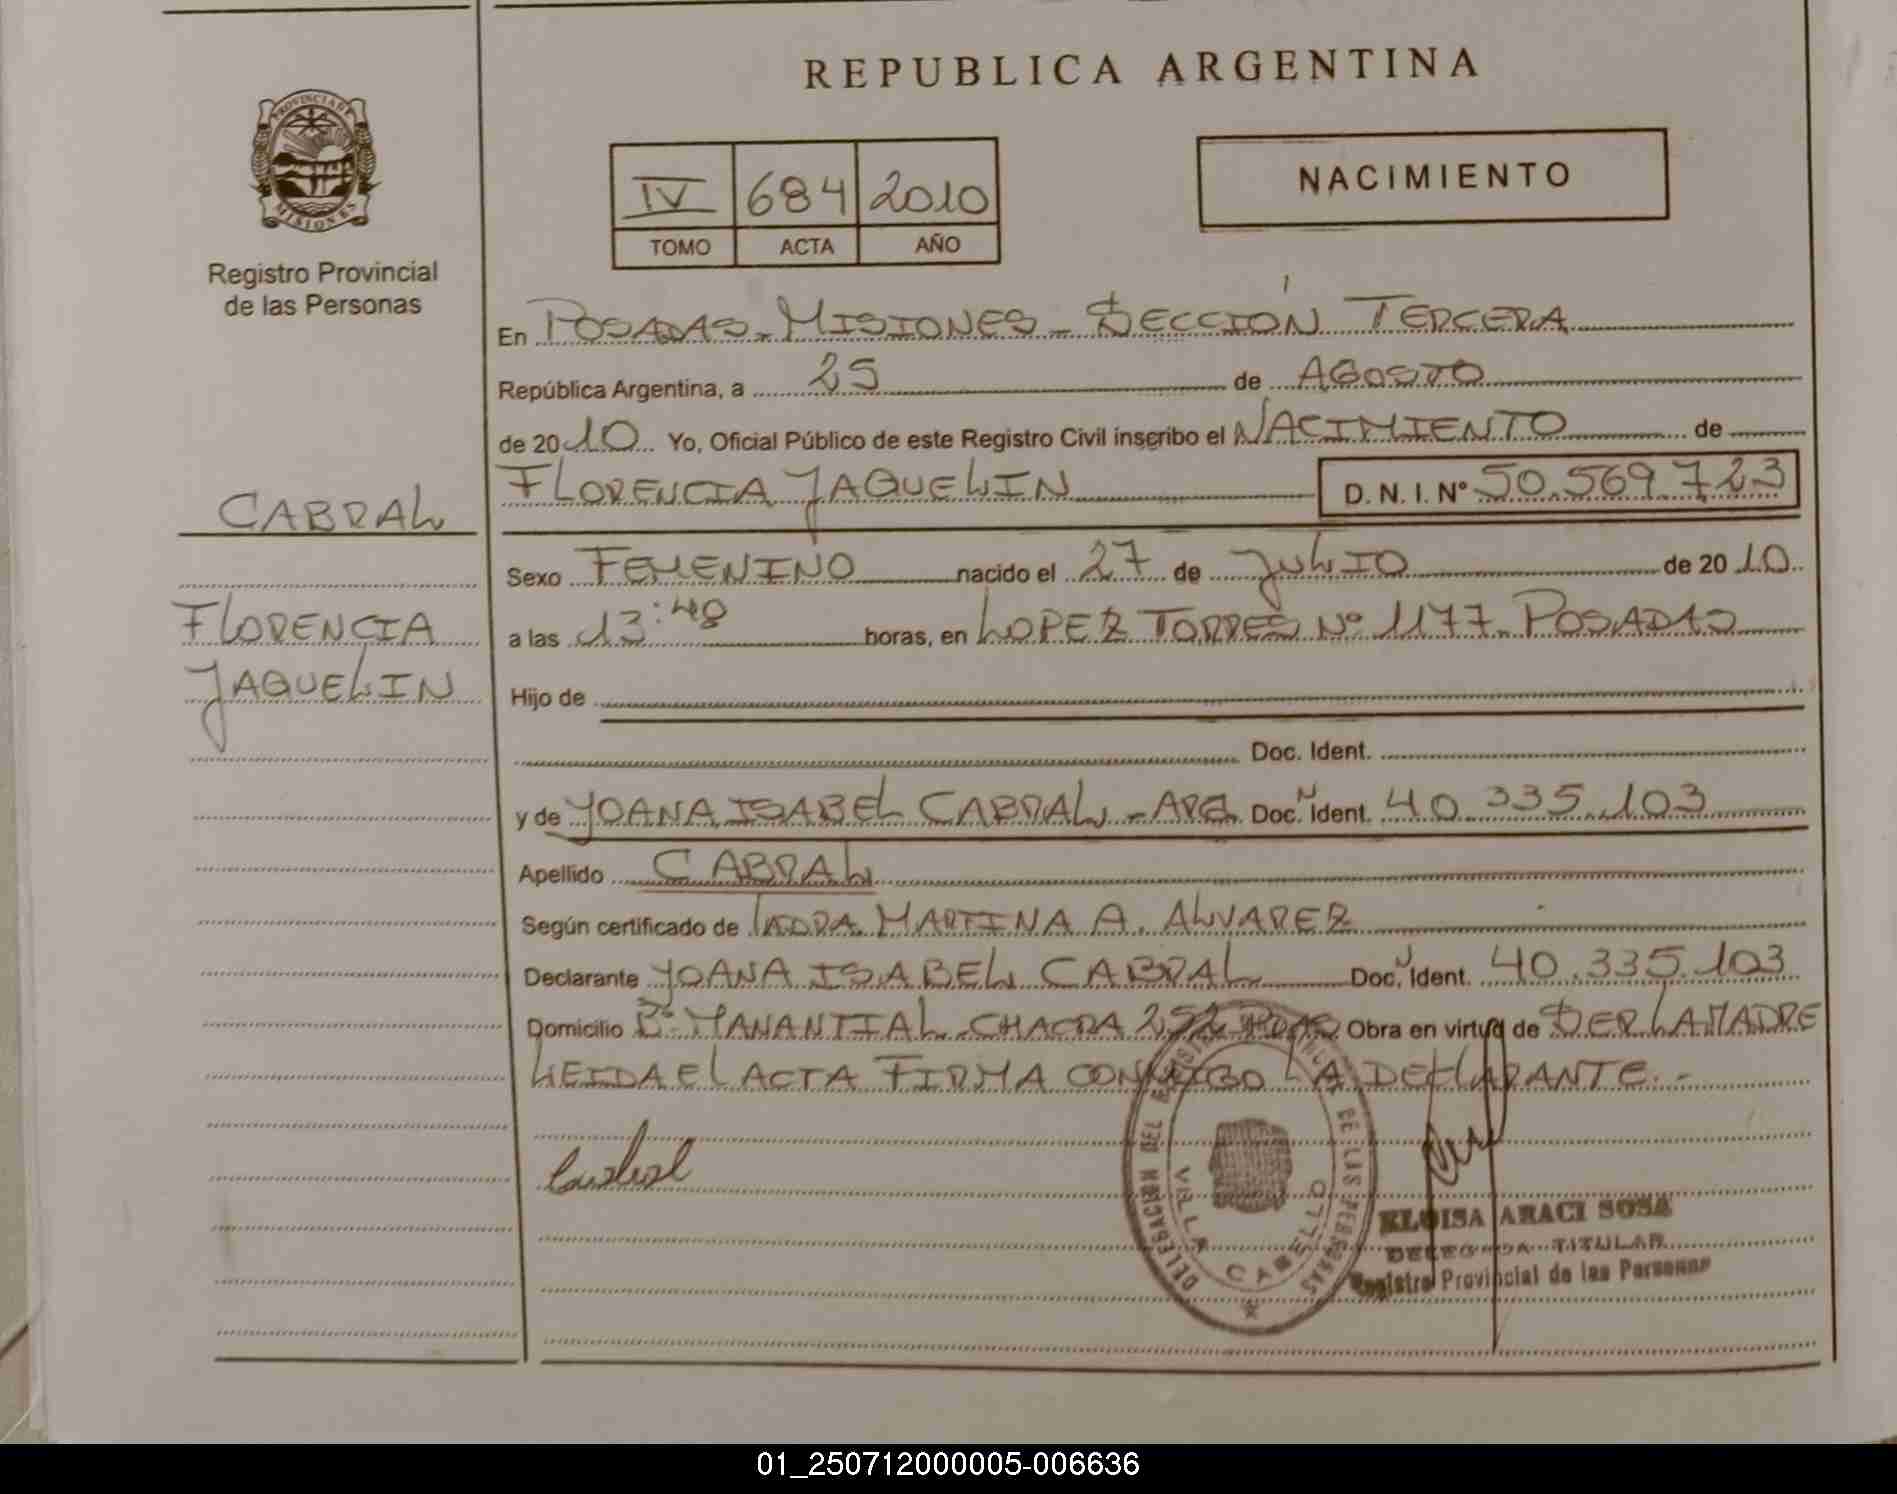 REPUBLICA ARGENTINA
PROVINCIA DE
MISIONES
Registro Provincial
de las Personas
IV 684 2010
TOMO ACTA AÑO
NACIMIENTO
En POSADAS - MISIONES - SECCIÓN TERCERA
República Argentina, a 25 de AGOSTO
de 2010 Yo, Oficial Público de este Registro Civil inscribo el NACIMIENTO de
FLORENCIA JAQUELIN D. N. I. Nº 50.569.723
CABRAL
FLORENCIA
JAQUELIN
Sexo FEMENINO nacido el 27 de JULIO de 2010
a las 13:48 horas, en LOPEZ TORRES Nº 1177 - POSADAS
Hijo de
Doc. Ident.
y de YOANA ISABEL CABRAL - ARG. Doc. Ident. 40.335.103
Apellido CABRAL
Según certificado de MARTINA A. ALVAREZ
Declarante YOANA ISABEL CABRAL Doc. Ident. 40.335.103
Domicilio Bº MANANTIAL CHACRA 252 Obra en virtud de SER LA MADRE
LEIDA EL ACTA FIRMA CONMIGO LA DECLARANTE.-
Cabral
DELEGACION DEL REGISTRO PROVINCIAL DE LAS PERSONAS
VILLA CABELLO
ELOISA ARACI SOSA
DELEGADA TITULAR
Registro Provincial de las Personas
01_250712000005-006636